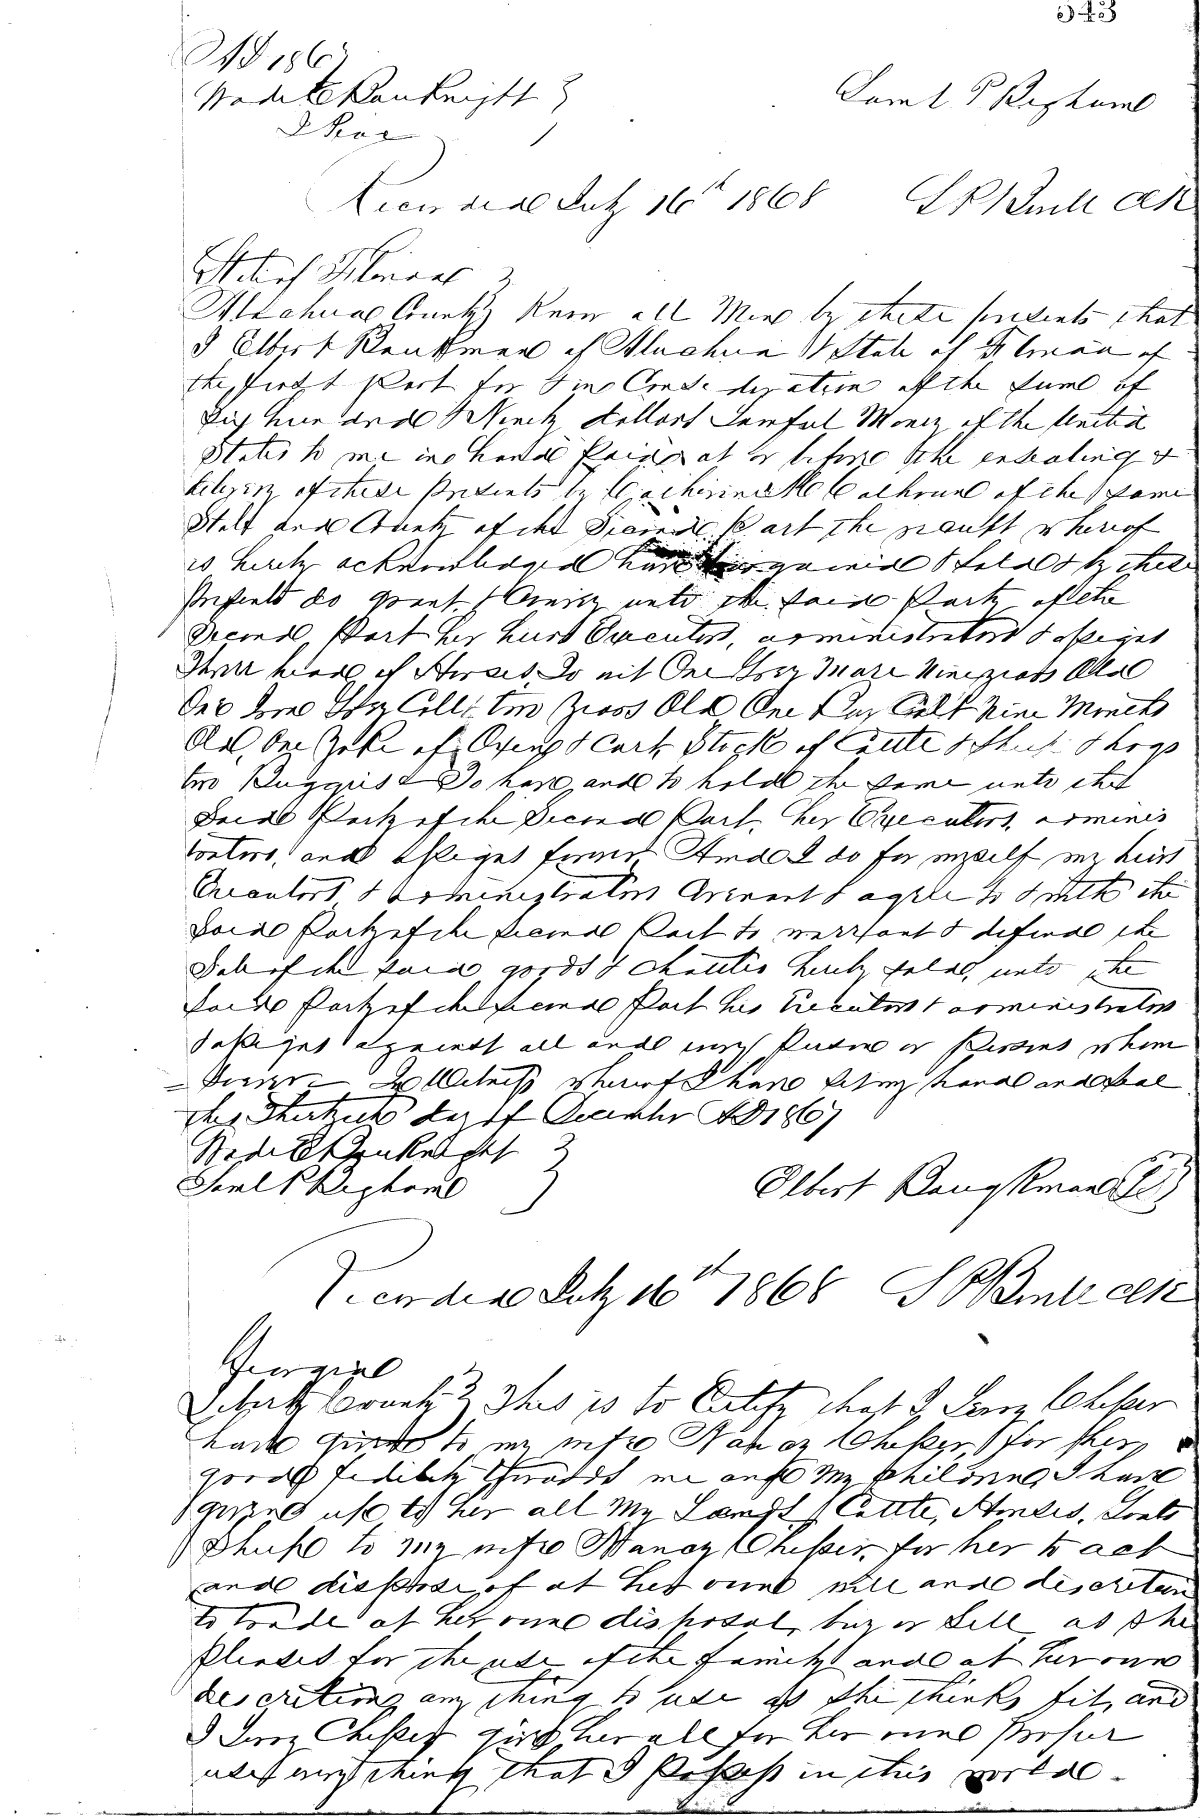 343
AD 1867
Wade E Bauknight
Saml P Bigham
Recorded July 16th 1868 clk
State of Florida
Alachua County Know all Men by these presents that
I Elbert of Alachua & State of Florida of
the first Part for & in Consideration of the Sum of
Six hundred & Ninety dollars Lawful Money of the United
States to me in hand Paid at or before the ensealing &
delivery of these Presents by Catherine M Calhoun of the Same
State and County of the Second Part the receipt whereof
is hereby acknowledged have bargained & Sold & by these
Presents do grant & Convey unto the Said Party of the
Second Part her heirs Executors, administrators & assigns
Three head of Horses To wit One Grey Mare Nine years Old
One Grey Colt two years Old One Bay Colt Nine Months
Old, One Yoke of Oxen & Cart, Stock of Cattle & Sheep & hogs
two Buggies & To have and to hold the Same unto the
Said Party of the Second Part, her Executors, adminis
trators, and assigns forever And I do for myself my heirs
Executors & administrators Covenant & agree to & with the
Said Party of the Second Part to warrant & defend the
Sale of the Said goods & chattles hereby Sold, unto the
Said Party of the Second Part his Executors & administrators
& assigns against all and every Person or Persons whom
Soever = In Witness whereof I have Set my hand and Seal
this day of December AD 1867
Wade E Bauknight
Saml P Bigham
Elbert
Recorded July 16th 1868 clk
Georgia
Liberty County This is to Certify that I Chesser
have given to my wife Nancy Chesser, for her
good fedility towards me and My Children, I have
given up to her all My Lands, Cattle, Horses, Goats
Sheep to my wife Nancy Chesser, for her to act
and dispose of at her own will and descretion
to trade at her own disposal, buy or Sell as She
Pleases for the use of the family and at her own
descretion any thing to use as She thinks fit, and
I Chesser give her all for her own proper
use every thing that I Possess in this world -